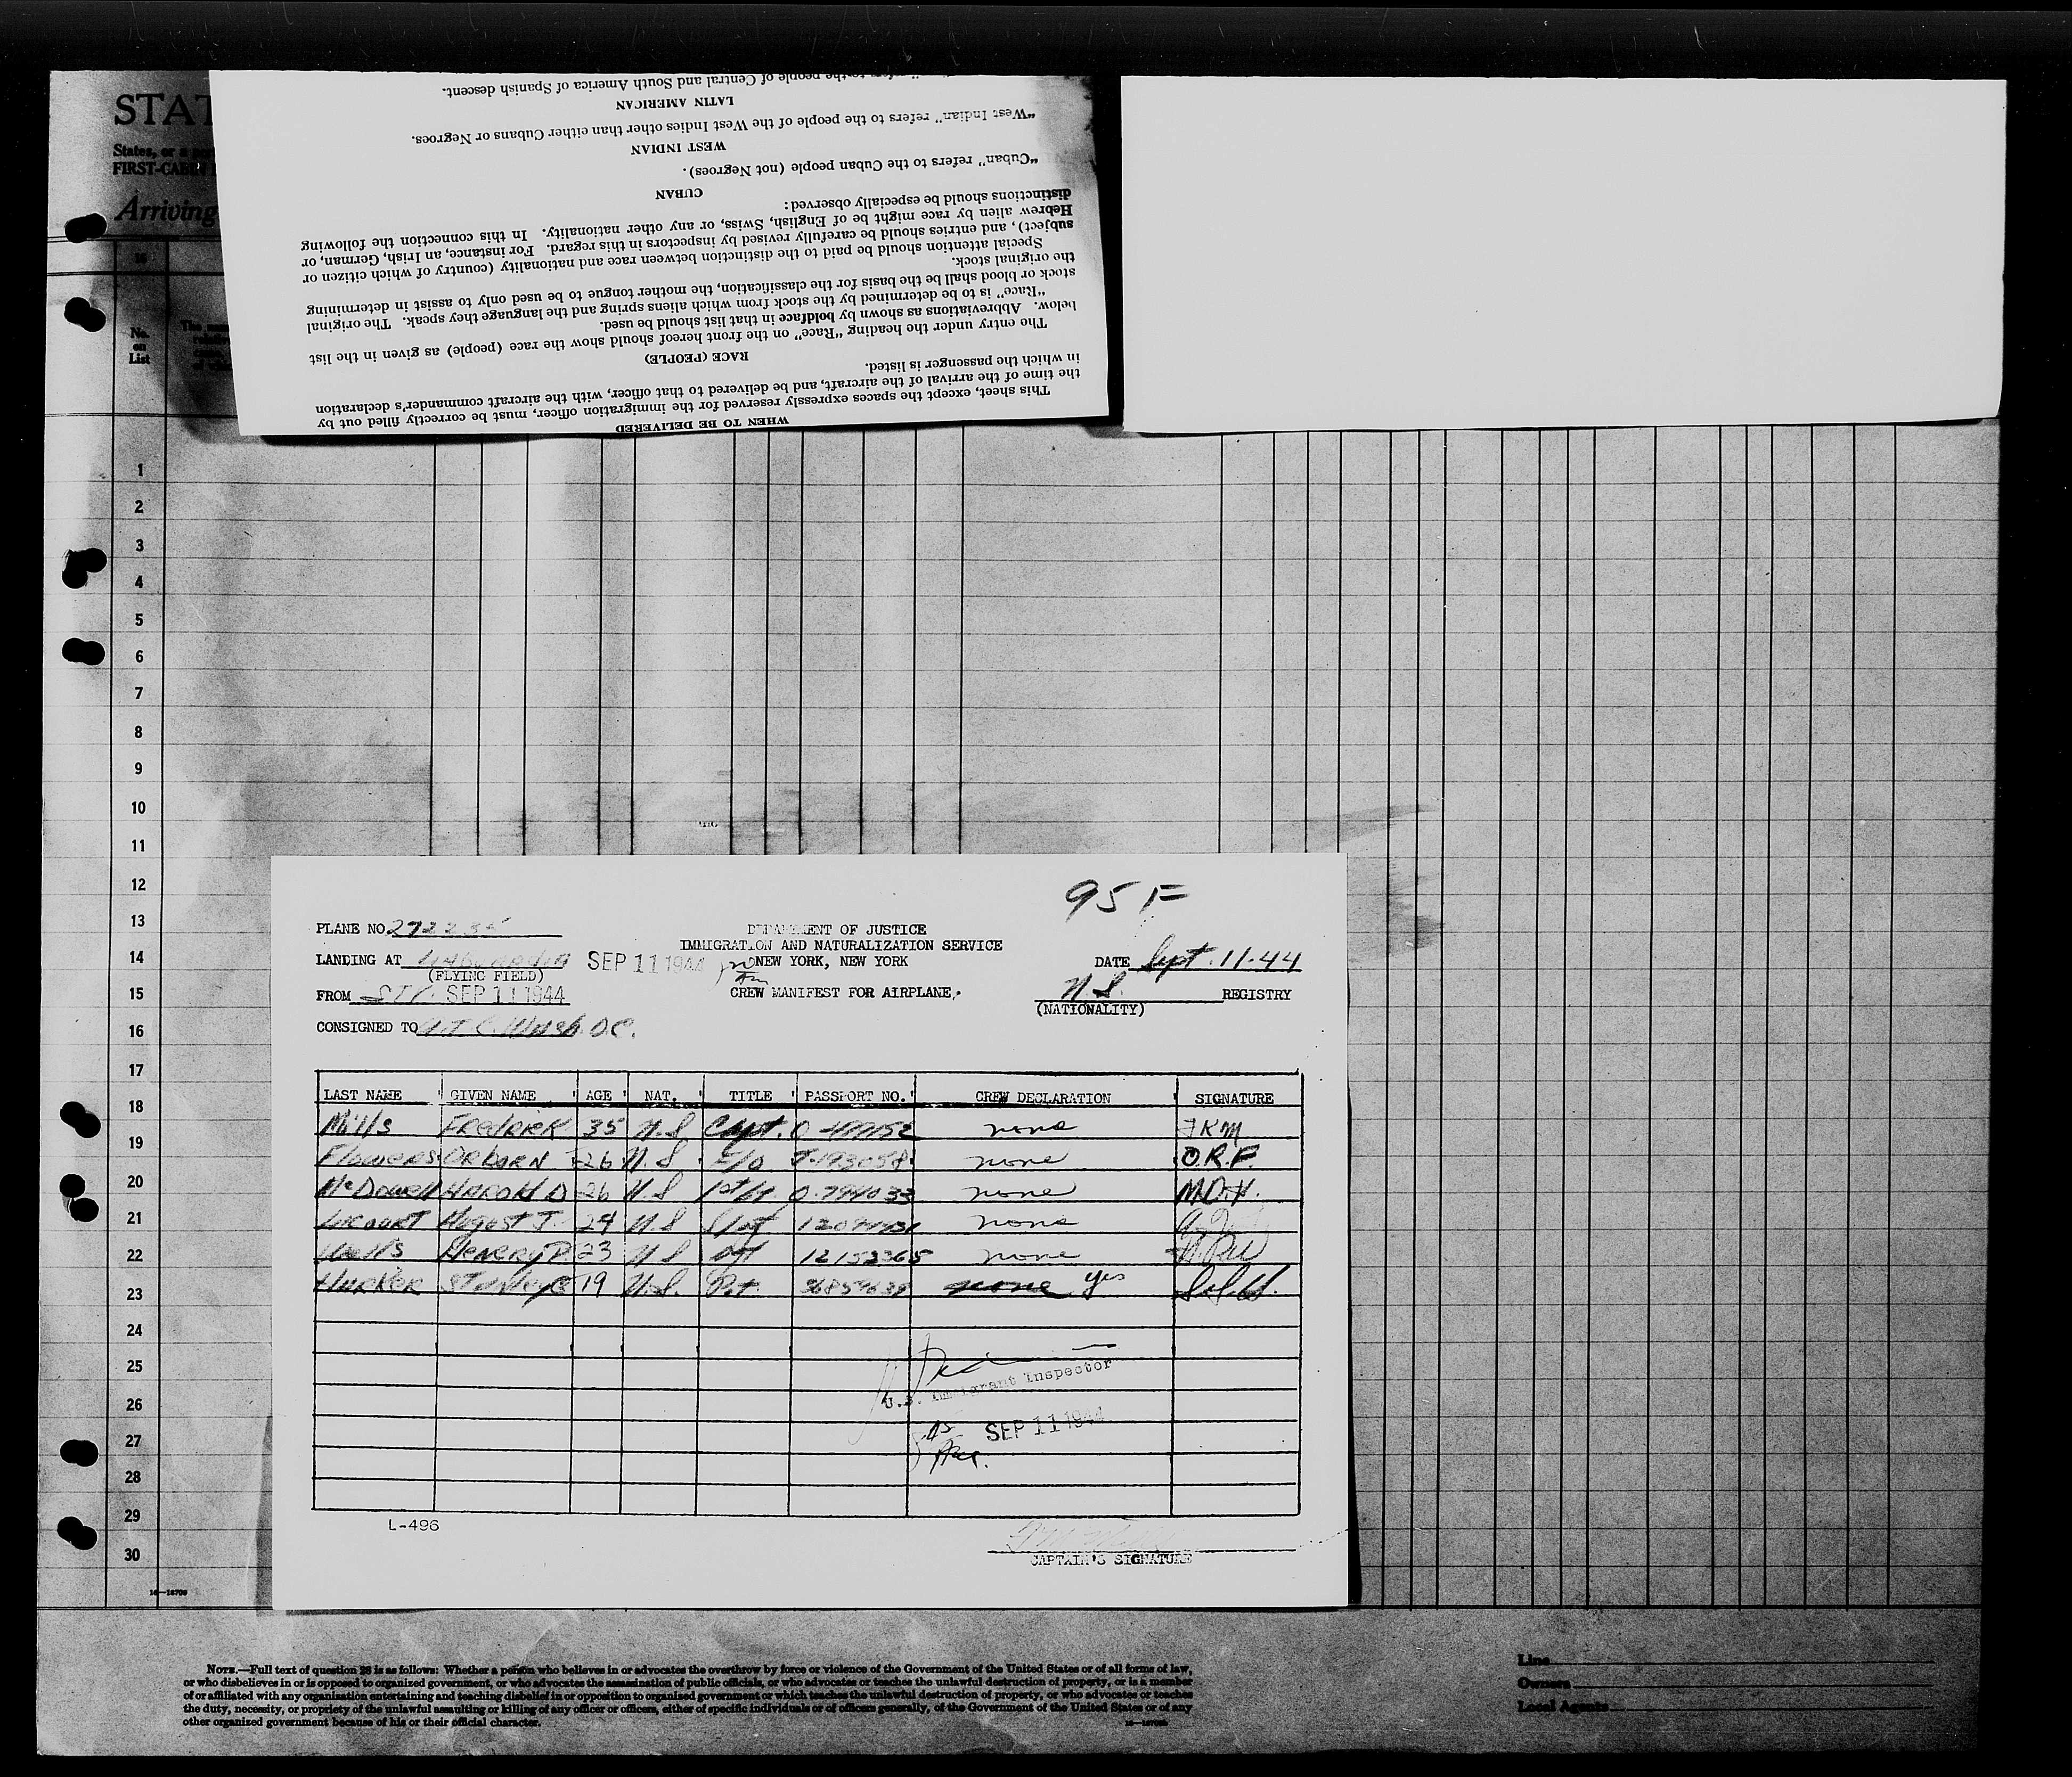 STAT
States, or a
FIRST-CABIN
Arriving
No.
on
List
refers to the people of Central and South America of Spanish descent.
LATIN AMERICAN
"West Indian" refers to the people of the West Indies other than either Cubans or Negroes.
WEST INDIAN
"Cuban" refers to the Cuban people (not Negroes).
CUBAN
distinctions should be especially observed:
Hebrew alien by race might be of English, Swiss, or any other nationality. In this connection the following
subject), and entries should be carefully revised by inspectors in this regard. For instance, an Irish, German, or
Special attention should be paid to the distinction between race and nationality (country of which citizen or
the original stock.
stock or blood shall be the basis for the classification, the mother tongue to be used only to assist in determining
"Race" is to be determined by the stock from which aliens spring and the language they speak. The original
below. Abbreviations as shown by boldface in that list should be used.
The entry under the heading "Race" on the front hereof should show the race (people) as given in the list
RACE (PEOPLE)
in which the passenger is listed.
the time of the arrival of the aircraft, and be delivered to that officer, with the aircraft commander's declaration
This sheet, except the spaces expressly reserved for the immigration officer, must be correctly filled out by
WHEN TO BE DELIVERED
1
2
3
4
5
6
7
8
9
10
11
12
13
14
15
16
17
18
19
20
21
22
23
24
25
26
27
28
29
30
16—18709
95 F
PLANE NO. 272235
DEPARTMENT OF JUSTICE
IMMIGRATION AND NATURALIZATION SERVICE
LANDING AT SEP 11 1944 NEW YORK, NEW YORK DATE Sept. 11-44
(FLYING FIELD)
FROM SEP 11 1944 CREW MANIFEST FOR AIRPLANE. U.S. REGISTRY
(NATIONALITY)
CONSIGNED TO A.T.C. Wash. D.C.
LAST NAME GIVEN NAME AGE NAT. TITLE PASSPORT NO. CREW DECLARATION SIGNATURE
Mills FREDRICK 35 U.S Capt. none FKM
Flowers ORBORN 26 U.S F/O T-193058 none O.R.F.
McDowell HAROLD D 26 U.S 1st Lt. none M.D.H.
August J. 24 U.S none
Wells HENERY P. 23 U.S 12153365 none
HURKER Stanley C 19 U.S. Pvt. none yes S.S.H.
U.S. Immigrant Inspector
SEP 11 1944
L-496
CAPTAIN'S SIGNATURE
NOTE.—Full text of question 28 is as follows: Whether a person who believes in or advocates the overthrow by force or violence of the Government of the United States or of all forms of law,
or who disbelieves in or is opposed to organized government, or who advocates the assassination of public officials, or who advocates or teaches the unlawful destruction of property, or is a member
of or affiliated with any organization entertaining and teaching disbelief in or opposition to organized government or which teaches the unlawful destruction of property, or who advocates or teaches
the duty, necessity, or propriety of the unlawful assaulting or killing of any officer or officers, either of specific individuals or of officers generally, of the Government of the United States or of any
other organized government because of his or their official character.
Line
Owners
Local Agents